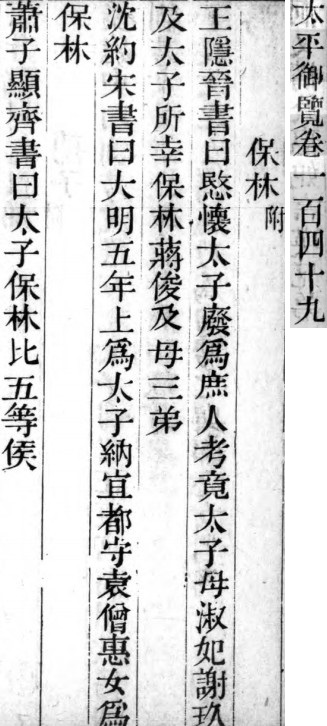 太平御覽卷一百四十九
保林附
王隱晉書曰愍懷太子廢爲庶人考竟太子母淑妃謝玖
及太子所幸保林蔣俊及母三弟
沈約宋書曰大明五年上爲太子納宜都守袁僧惠女爲
保林
蕭子顯齊書曰太子保林比五等侯